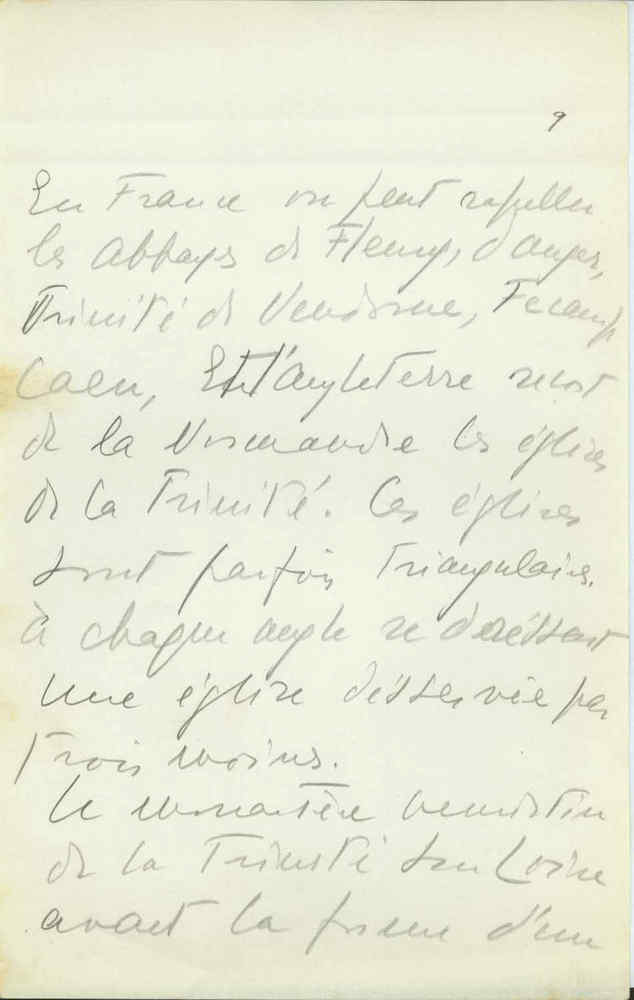 9
En France on peut rappeller
les abbayes de Fleury, d'Angers,
Trinité de Vendome, Fecamp
Caen, Et l'Angleterre recoit
de la Normandie les églises
de la Trinité. Ces églises
sont parfois triangulaires.
à chaque angle se
une église desservie par
trois moines.
Le monastère
de la Trinité sur Loire
avait la forme d'un